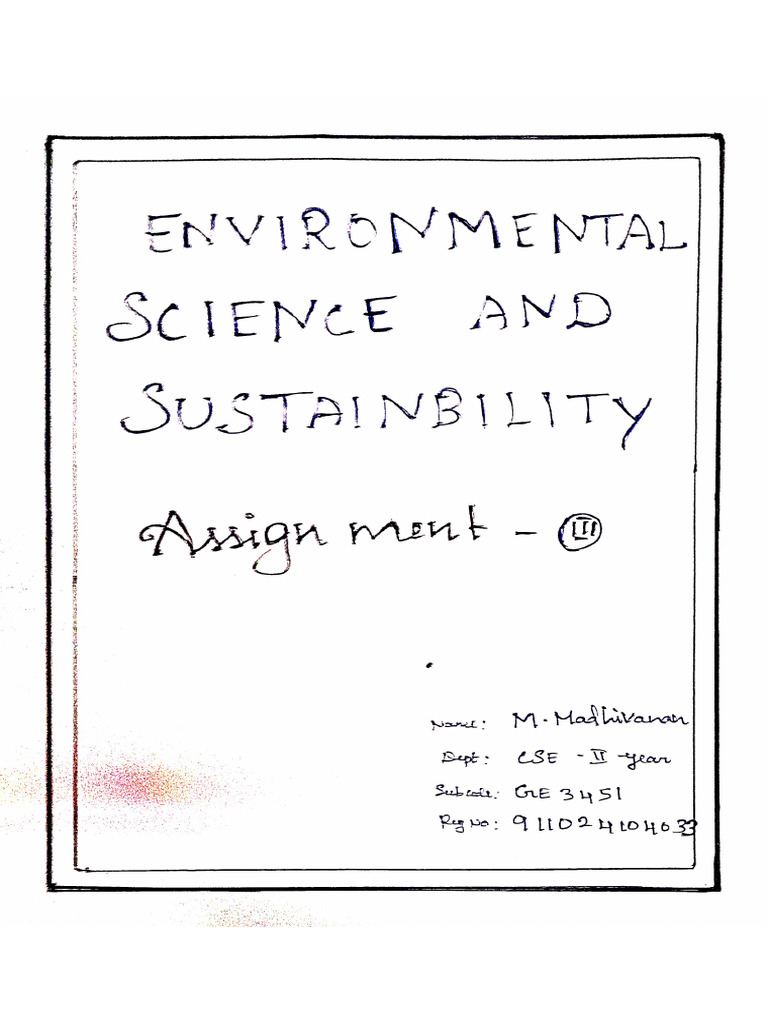 ENVIRONMENTAL
SCIENCE AND
SUSTAINBILITY
Assignment - III
Name: M. Madhivanan
Dept: CSE - II - year
Subcode: GE 3451
Reg No: 911024104033